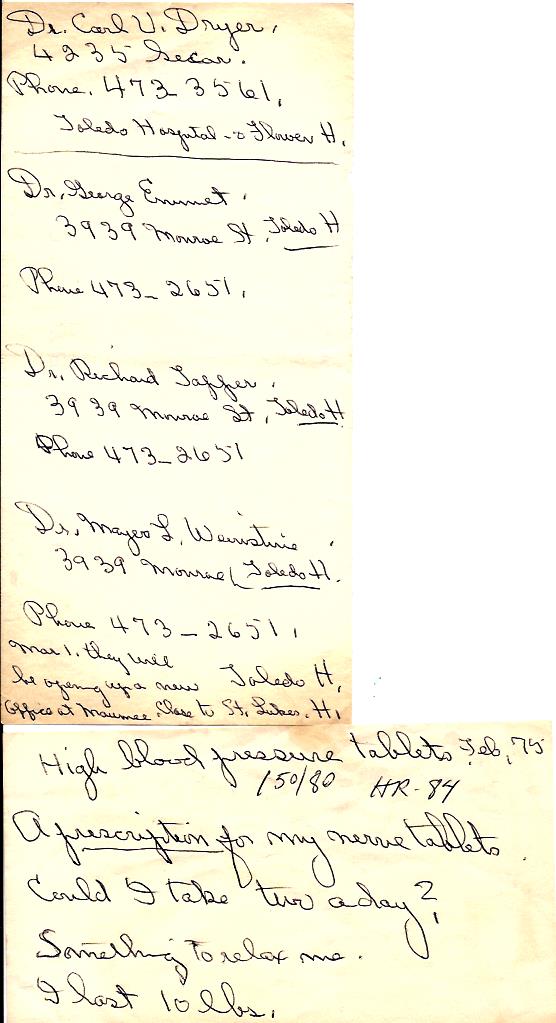 Dr. Carl V. Dryer.
4235 Secor.
Phone. 473-3561.
Toledo Hospital - & Flower H.
Dr. George Emmet.
3939 Monroe St. Toledo H
Phone 473-2651.
Dr. Richard Tapper.
3939 Monroe St, Toledo H
Phone 473-2651
Dr. Mayer L. Weinstine.
3939 Monroe (Toledo H.
Phone 473-2651.
Mar 1. they will
be opening up a new Toledo H.
Office at Maumee. Close to St. Lukes. H.
High blood pressure tablets Feb, 75
150/80 HR-84
A prescription for my nerve tablets.
Could I take two a day?
Something to relax me.
I lost 10 lbs.